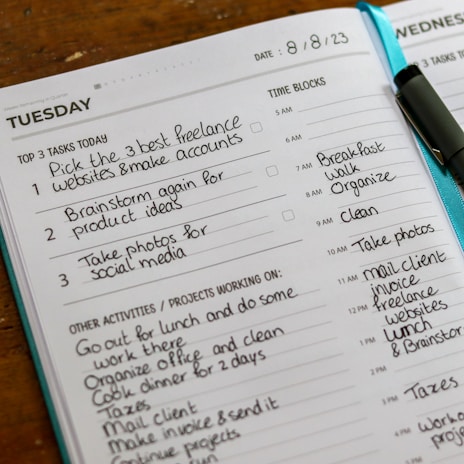 TUESDAY
DATE : 8/8/23
TOP 3 TASKS TODAY
1 Pick the 3 best freelance
websites & make accounts
2 Brainstorm again for
product ideas
3 Take photos for
social media
OTHER ACTIVITIES / PROJECTS WORKING ON:
Go out for lunch and do some
work there
Organize office and clean
Cook dinner for 2 days
Taxes
Mail client
Make invoice & send it
Continue projects
run
TIME BLOCKS
5 AM
6 AM
7 AM Breakfast
walk
8 AM Organize
9 AM Clean
10 AM Take photos
11 AM Mail client
invoice
12 PM freelance
websites
1 PM Lunch
& Brainstor
2 PM
3 PM Taxes
4 PM Work
proje
5 PM
WEDNES
TOP 3 TASKS TO